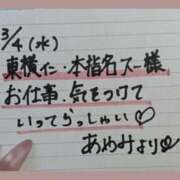 3/4(水)
東横イン・本指名スー様
お仕事、気をつけて
いってらっしゃい♡
あゆみより